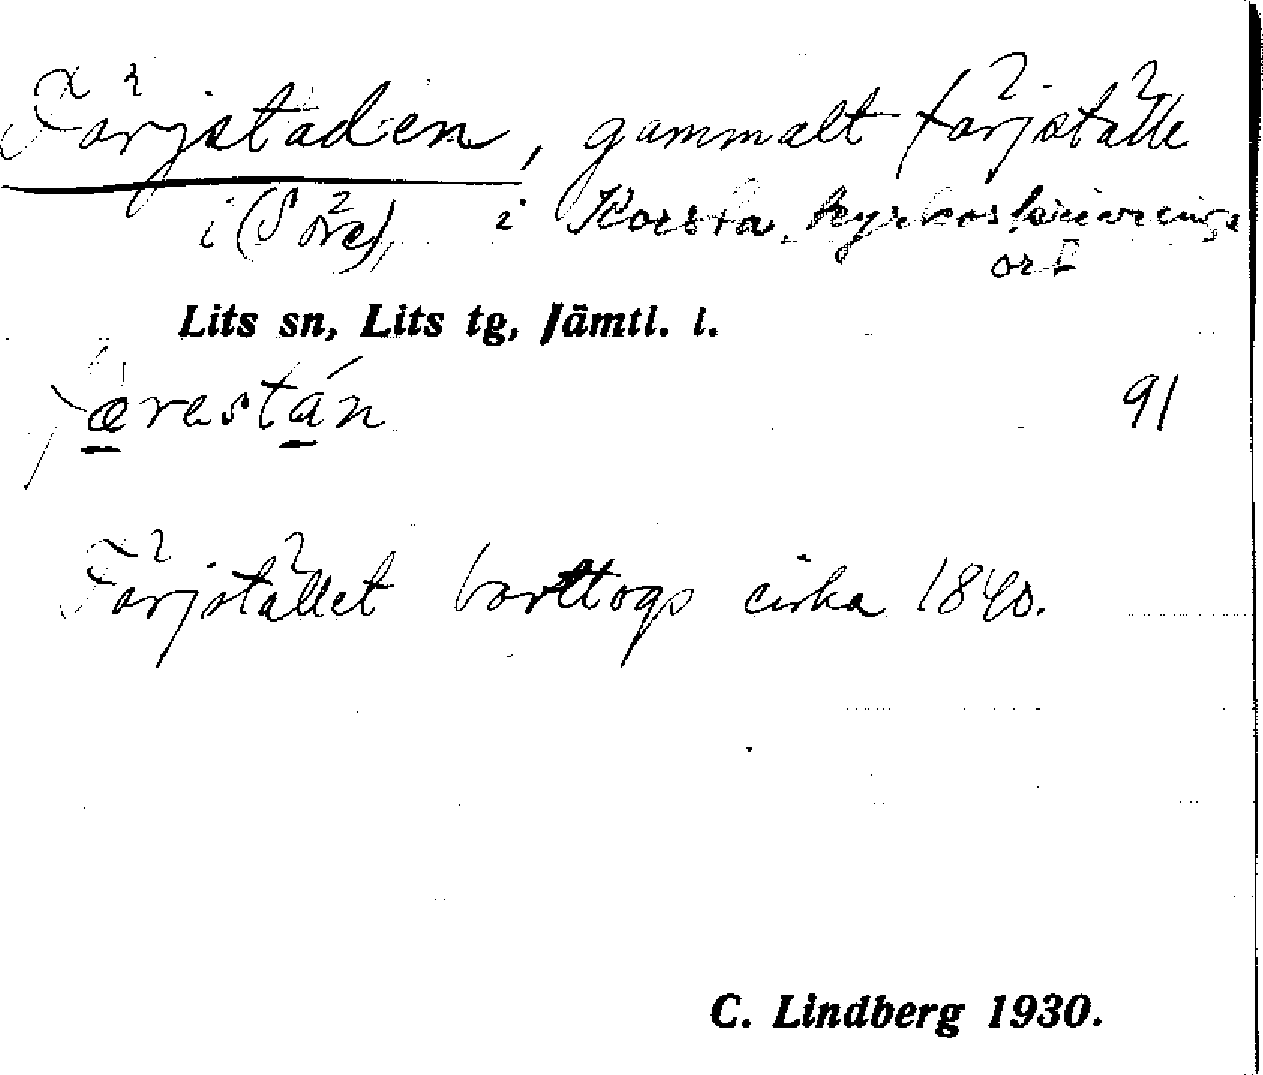 Färjstaden, gammalt färjställe
i (Söre), i Korsta, kyrkoskrivnings
ort
Lits sn, Lits tg, Jämtl. l.
färastán 91
Färjstället borttogs cirka 1840.
C. Lindberg 1930.